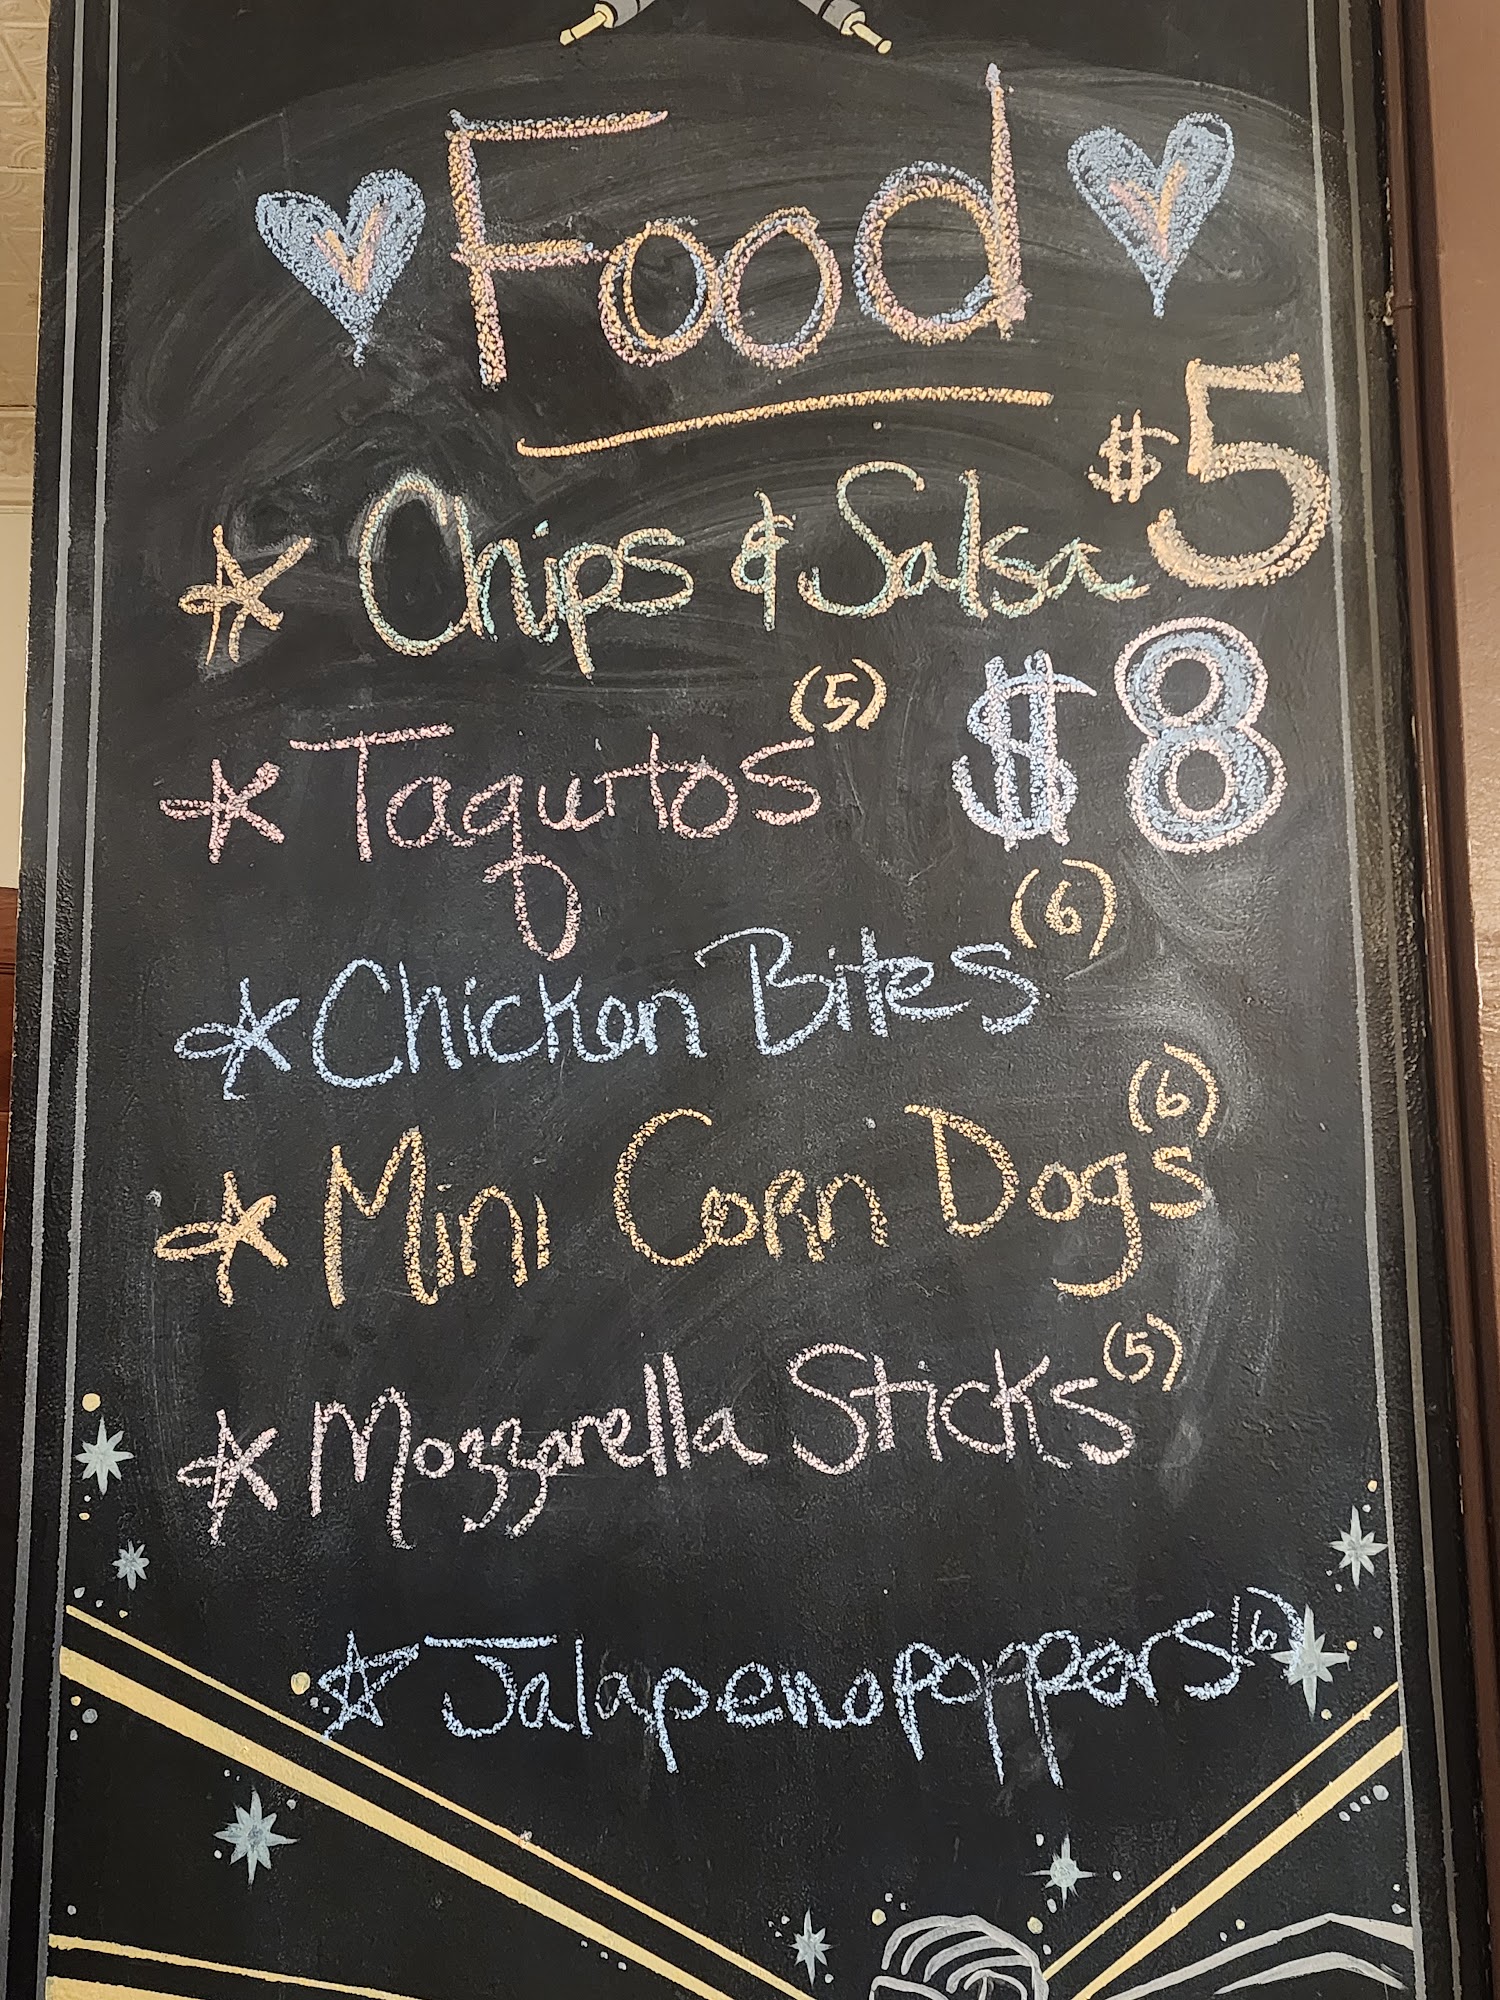 Food
Chips & Salsa $5
Taquitos (5) $8
Chicken Bites (6)
Mini Corn Dogs (6)
Mozzarella Sticks (5)
Jalapeno poppers (6)